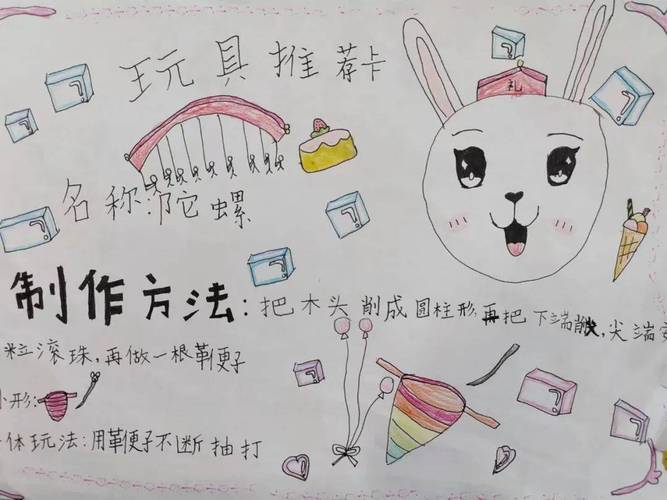 玩具推荐卡
礼
名称:陀螺
制作方法:把木头削成圆柱形,再把下端削,尖端
粒滚珠,再做一根鞭子
形:
体玩法:用鞭子不断抽打